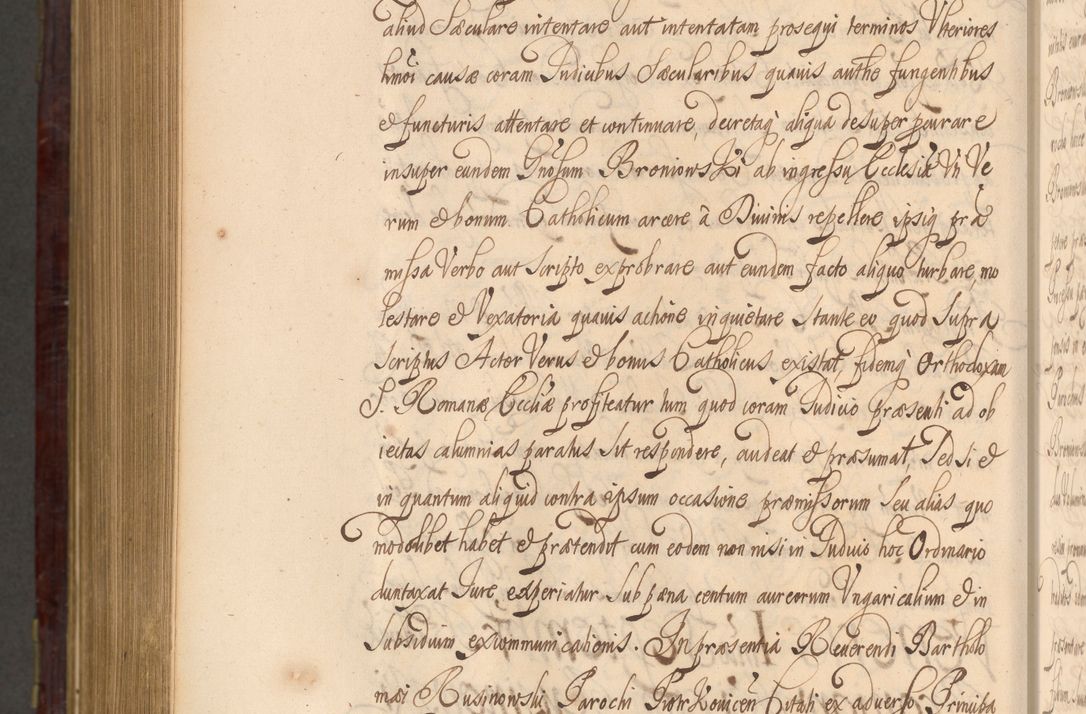 aliud Sæculare intentare aut intentatam prosequi terminos Vlteriores
hmoi causæ coram Iudicibus Sæcularibus quauis authe fungentibus
& functuris attentare et continuare, decretaq aliqua desuper pcurare
insuper eundem Gnosum Broniowski ab ingressu Ecclesiæ Vti Ve
rum & bonum Catholicum arcere à Diuinis repellere ipsiq præ
missa Verbo aut Scripto exprobrare aut eundem facto aliquo turbare, mo
lestare & Vexatoria quauis actione inquietare stante eo quod Supra
scriptus Actor Verus & bonus Catholicus existat, fidemq Orthodoxam
S. Romanæ Eccliæ profiteatur tum quod coram Iudicio præsenti ad ob
iectas calumnias paratus sit respondere, audeat & præsumat, Sed si &
in quantum aliquid contra ipsum occasione præmissorum seu alias quo
modolibet habet & prætendit cum eodem non nisi in Iudicio hoc Ordinario
duntaxat Iure experiatur sub pæna centum aureorum Vngaricalium & in
Subsidium excommunicationis. In præsentia Reuerendi Bartholo
mæi Rusinowski Parochi Piotrkovicen Citati ex aduerso Principa